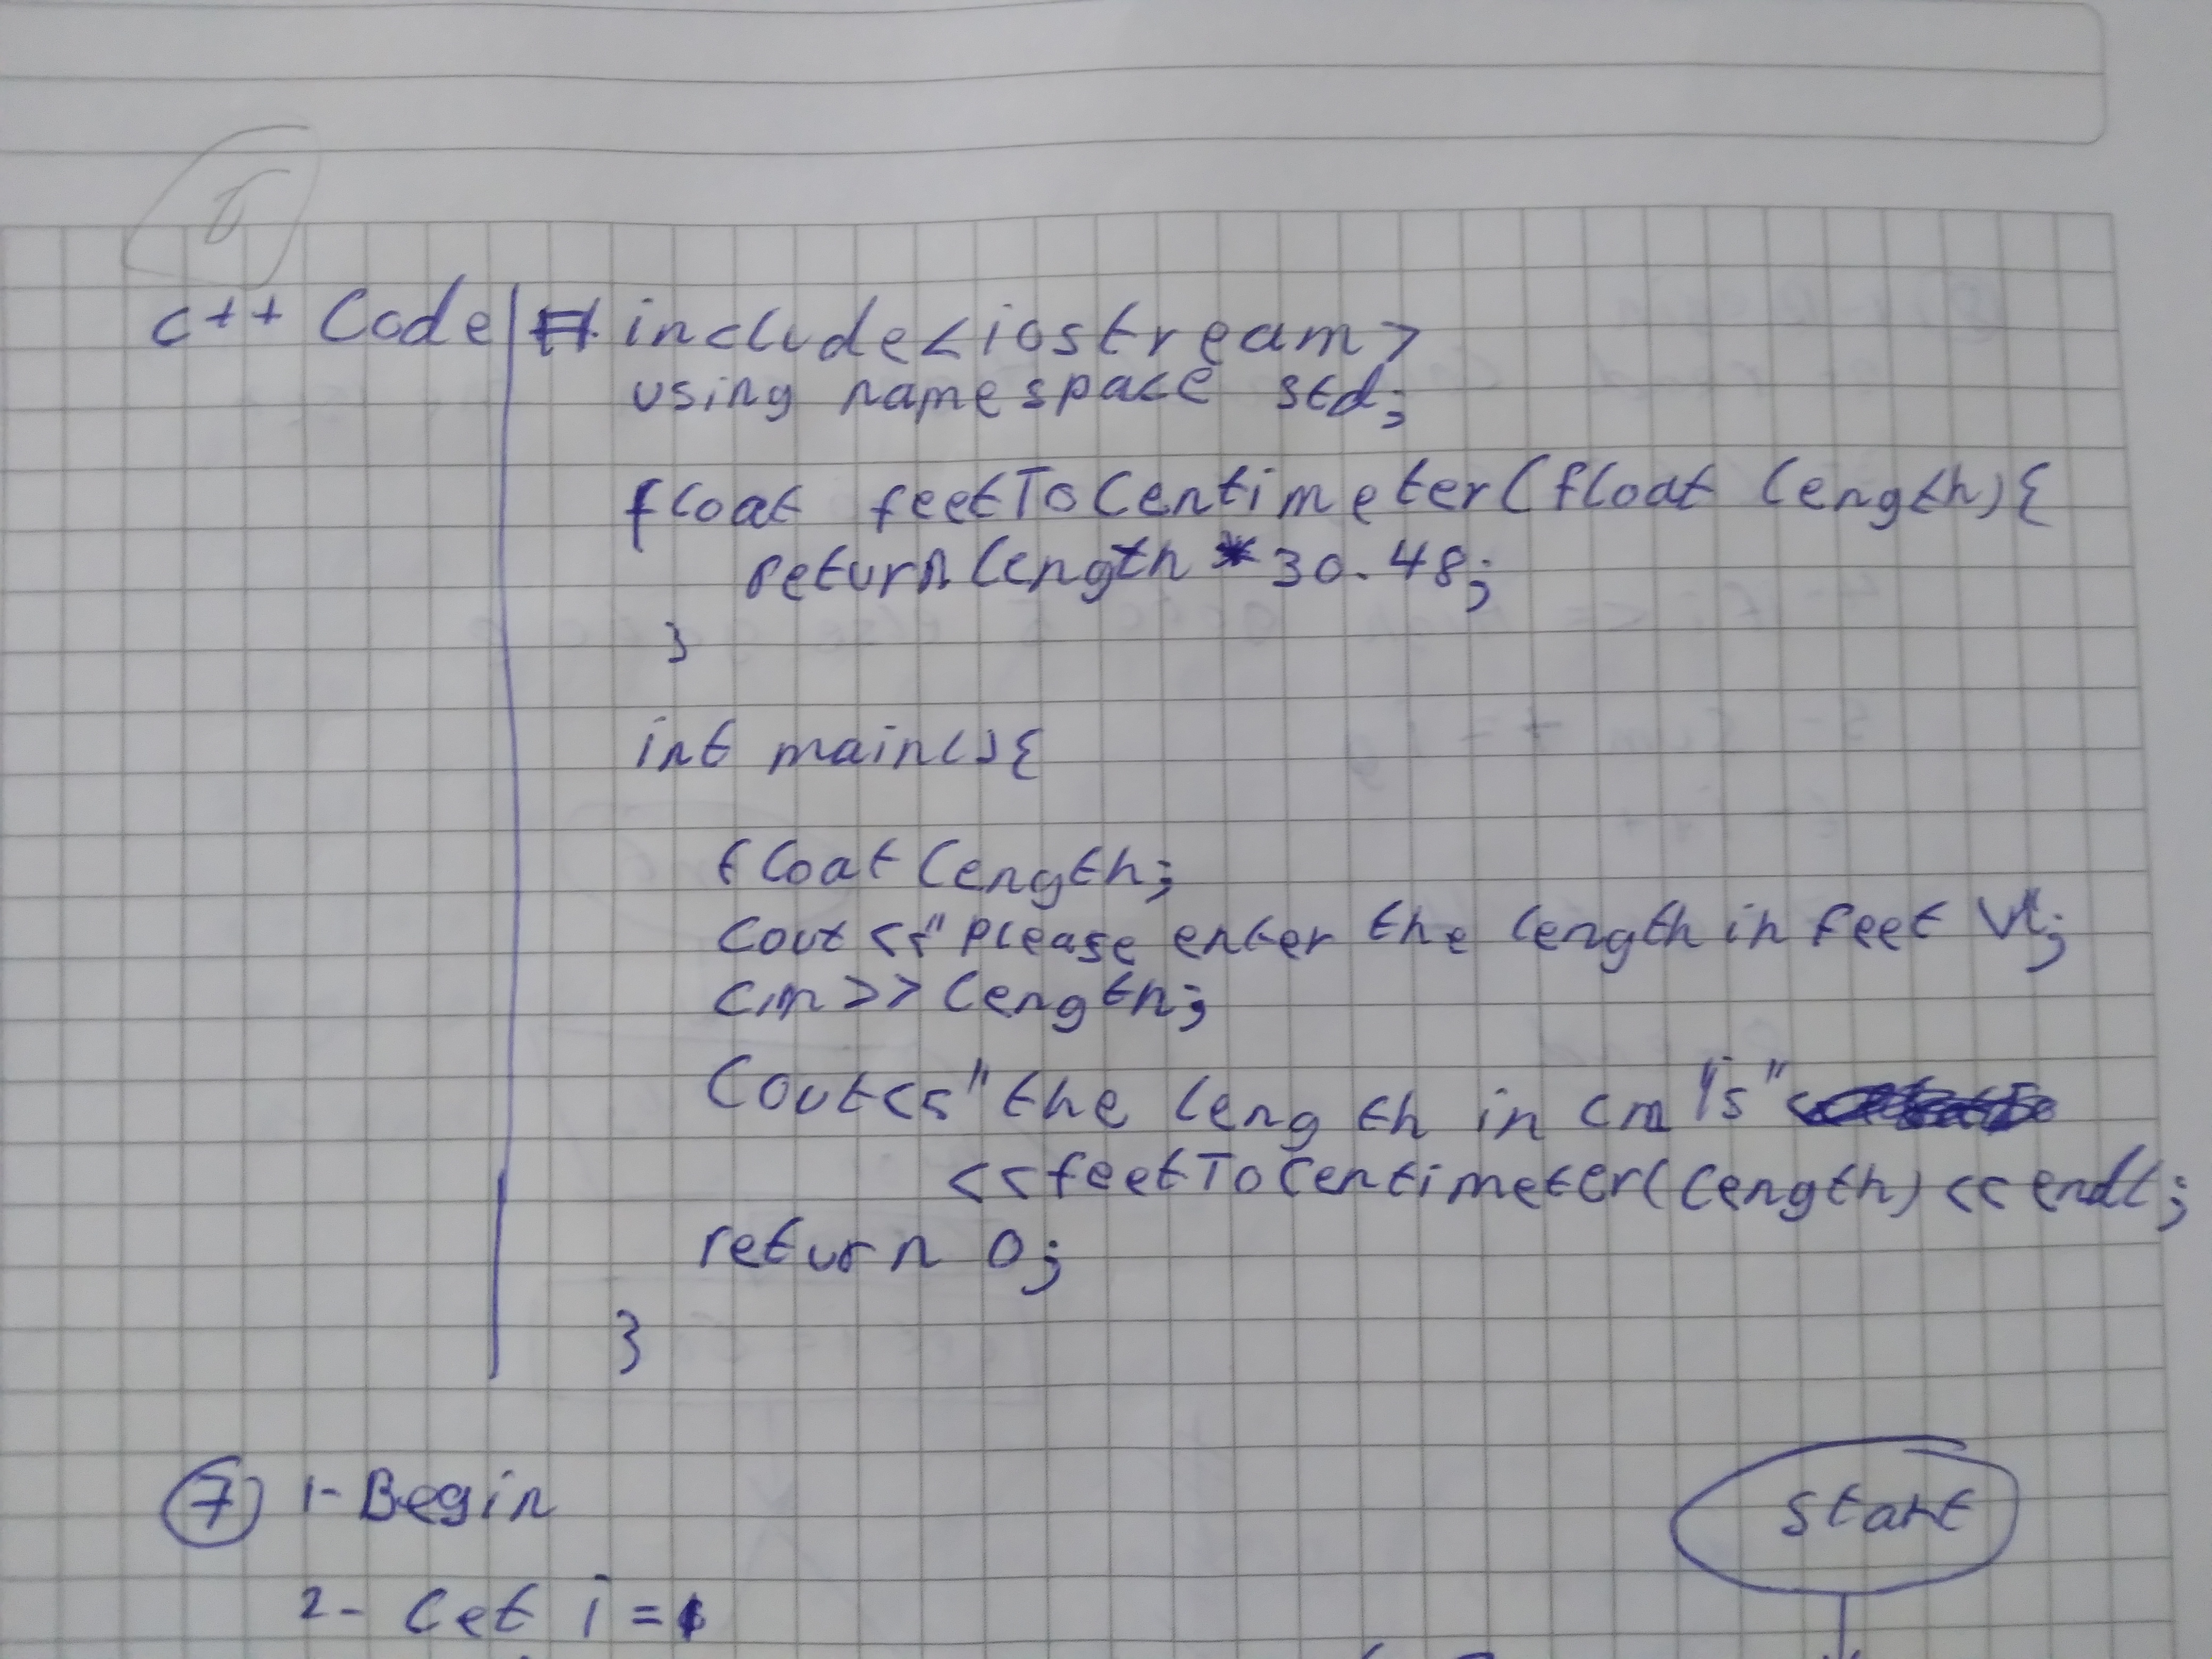 C++ Code # include<iostream>
using namespace std;
float feetToCentimeter(float length){
return length * 30.48;
}
int main(){
float length;
cout <<"please enter the length in feet
cin>> length;
Cout<<"the length in cm is"
<<feetToCentimeter(length) << endl;
return 0;
}
7 1- Begin
start
2- Let i =